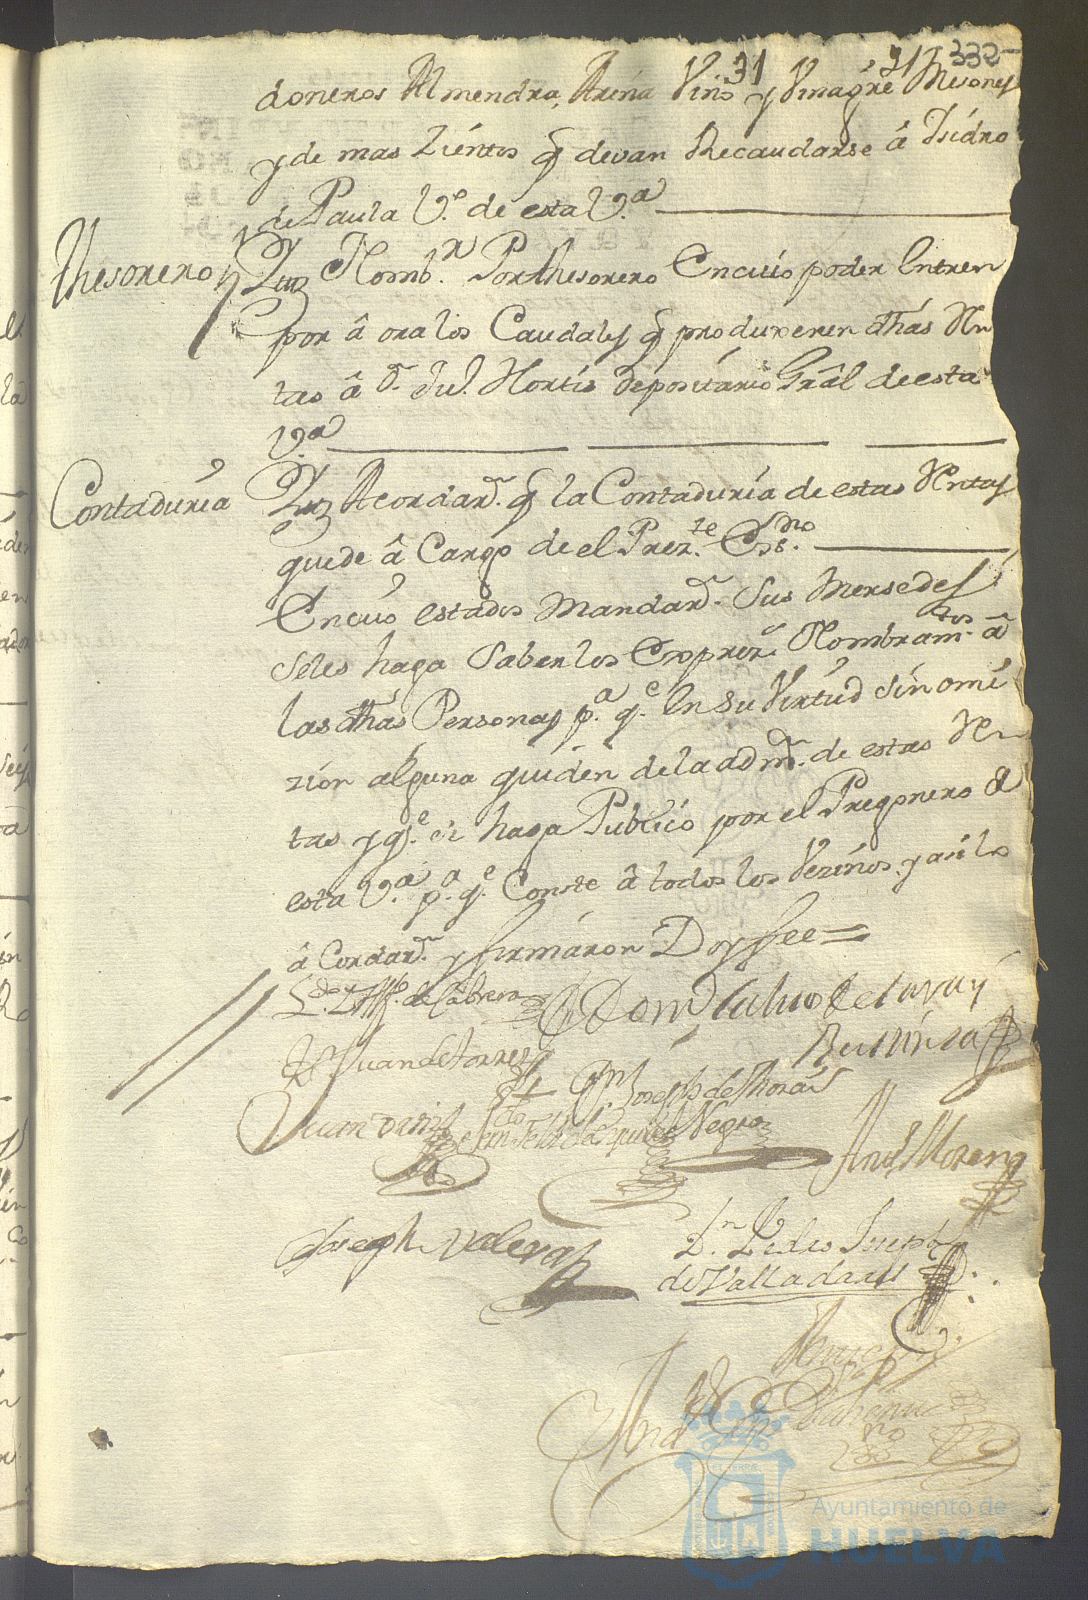 31 31 332
doneros Almendra, Arina Vino y Vinagre Mesones
y de mas Zientos q̃ devan Recaudarse â Isidro
de Paula V.º de esta V.ª
Thesorero
Nomb.n Por thesorero Encuio poder Entren
por â ora los Caudales q̃ produxeren dhâs Rn
tas â D. Jul. Hortis depositario Grâl de esta
V.ª
Contaduria
Acordar.n q̃ la Contaduria de estas Rntas
quede â Cargo de el Prez.te Ess.no
Encuio estado Mandar.n Sus Mersedes
seles haga Saber los Nombram.tos â
las dhâs Personas p.a q.e En su Virtud sin omi
zion alguna quiden de la adm.n de estas Rn
tas y q.e se haga Publico por el Pregonero de
esta V.ª p.a q.e Conste â todos los Vezinos. y asi lo
â Cordar.n y firmáron Doy fee =
L.do D. Alf.o de Cabrera
Juan de torres
D.n Joseph de Mora
Negro
And.s Moreno
Joseph Valera
D.n Pedro Joseph
de Valladares
Ayuntamiento de
HUELVA